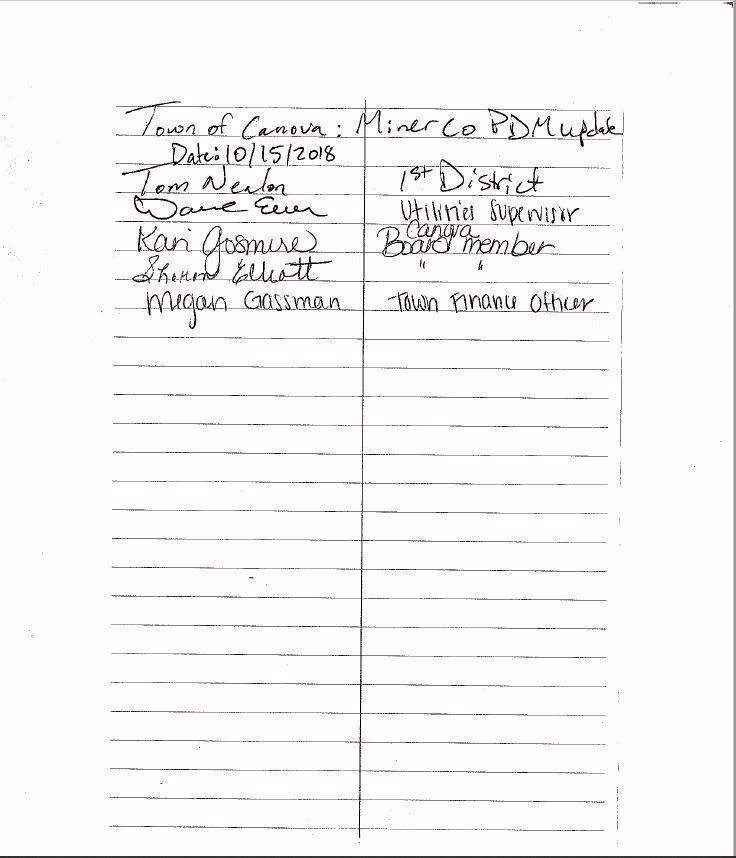 Town of Canova: Miner Co PDM update
Date: 10/15/2018
Tom Nealon 1st District
Utilities Supervisor
Kari Gosmire Canova Board member
Sharon Elliott " "
Megan Gassman Town Finance Officer